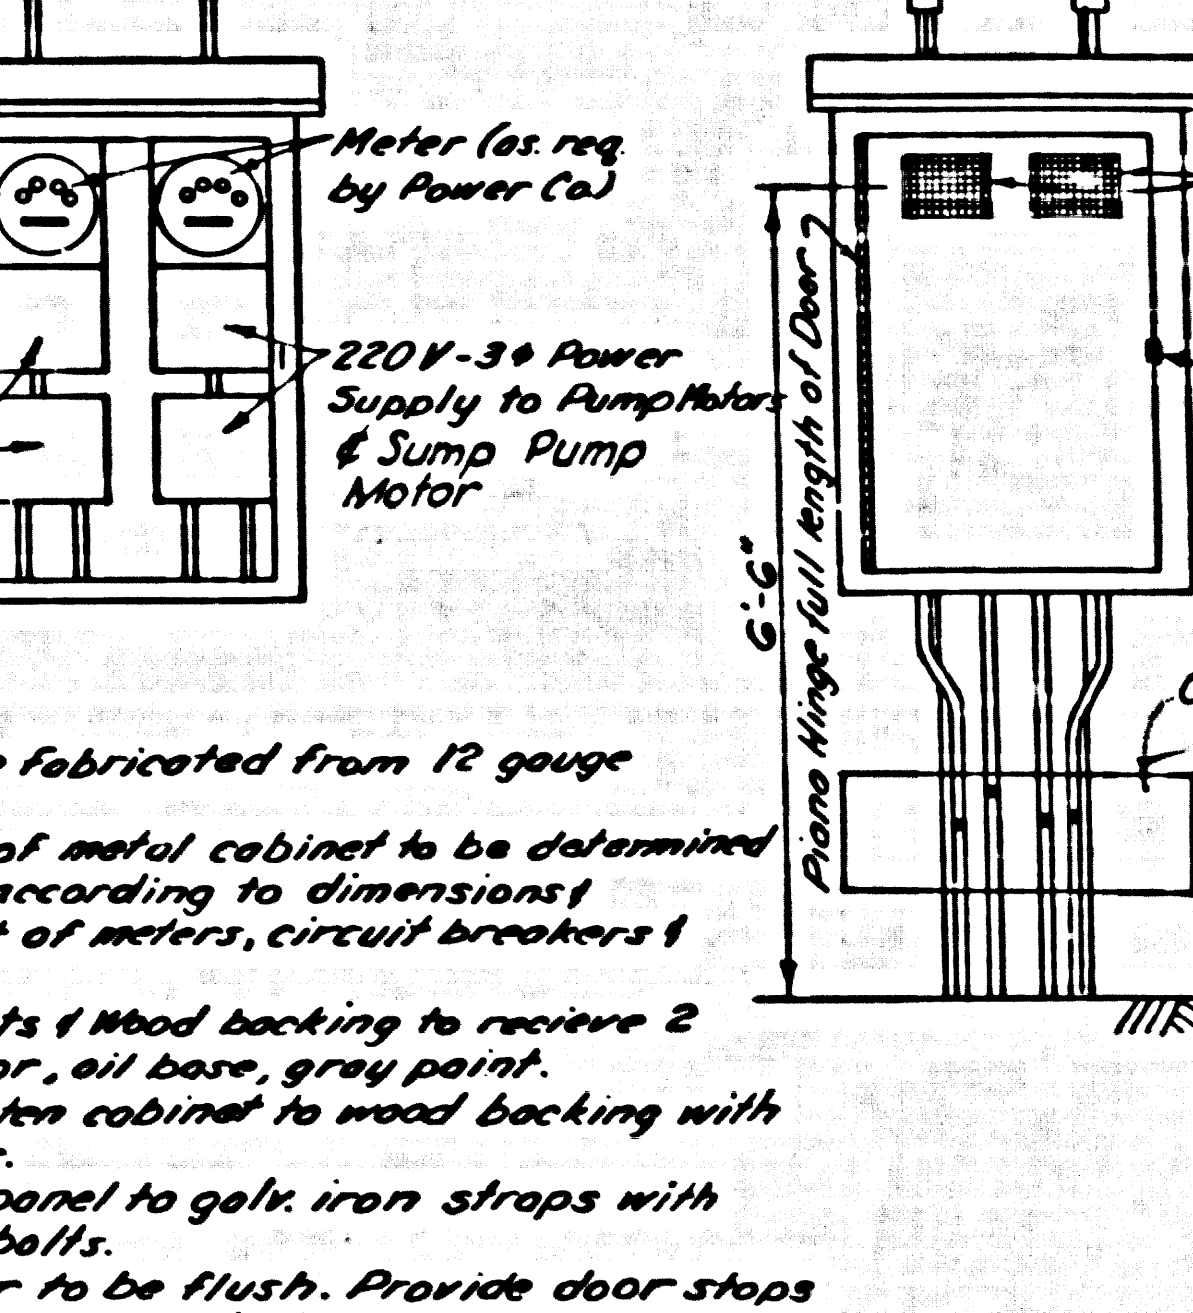 Meter (as. req.
by Power Co.)
220 V - 3 φ Power
Supply to Pump Motors
& Sump Pump
Motor
Piano Hinge full length of Door
6'-6"
fabricated from 12 gauge
of metal cabinet to be determined
according to dimensions &
of meters, circuit breakers &
& Wood backing to recieve 2
, oil base, gray paint.
cabinet to wood backing with
panel to galv. iron straps with
bolts.
to be flush. Provide door stops